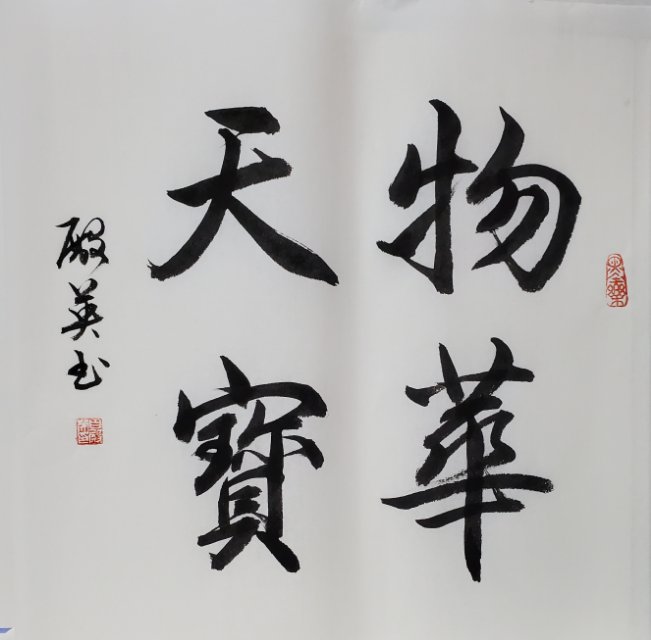 物華
天寶
殿英书